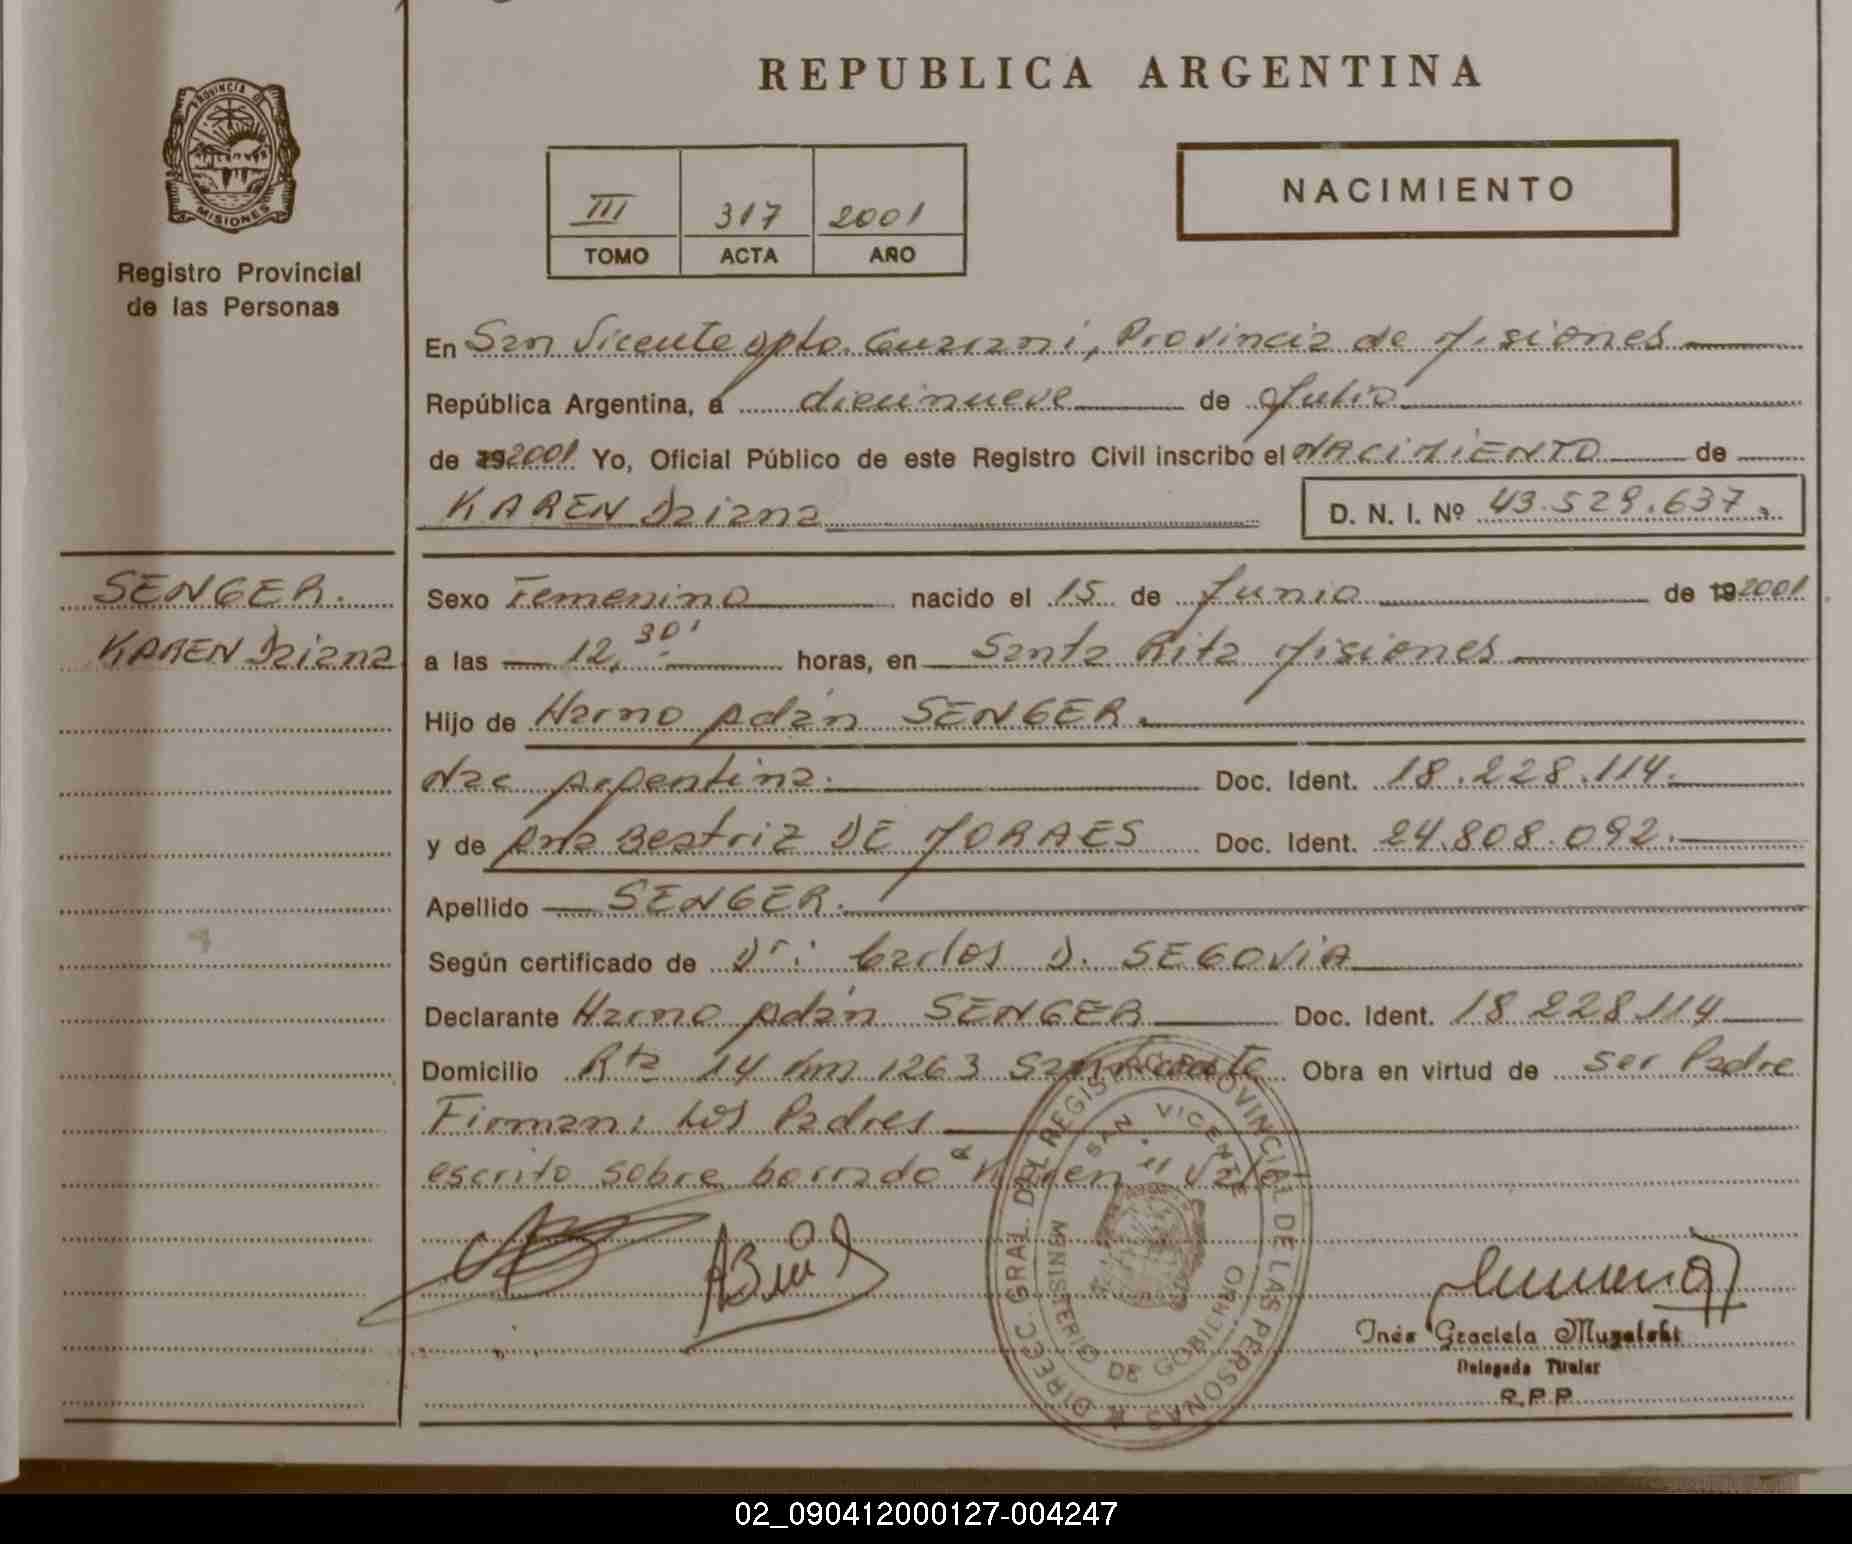 REPUBLICA ARGENTINA
PROVINCIA DE
MISIONES
Registro Provincial
de las Personas
III 317 2001
TOMO ACTA AÑO
NACIMIENTO
En San Vicente Dpto. Guarani, Provincia de Misiones
República Argentina, a diecinueve de Julio
de 192001 Yo, Oficial Público de este Registro Civil inscribo el NACIMIENTO de
KAREN Daiana D. N. I. Nº 43.529.637.
SENGER.
KAREN Daiana
Sexo Femenino nacido el 15 de Junio de 192001
a las 12,30' horas, en Santa Rita Misiones
Hijo de Harno Adán SENGER.
Nac Argentina. Doc. Ident. 18.228.114.
y de Ana Beatriz DE MORAES Doc. Ident. 24.808.092.
Apellido SENGER.
Según certificado de Dr: Carlos D. SEGOVIA
Declarante Harno Adán SENGER Doc. Ident. 18 228 114
Domicilio Rta 14 Km 1263 San Vicente Obra en virtud de Ser Padre
Firman: Los Padres
escrito sobre borrado "Karen" Vale
DIRECC. GRAL. DEL REGISTRO PROVINCIAL DE LAS PERSONAS
SAN VICENTE
MINISTERIO DE GOBIERNO
Inés Graciela Mugalski
Delegada Titular
R.P.P
02_090412000127-004247